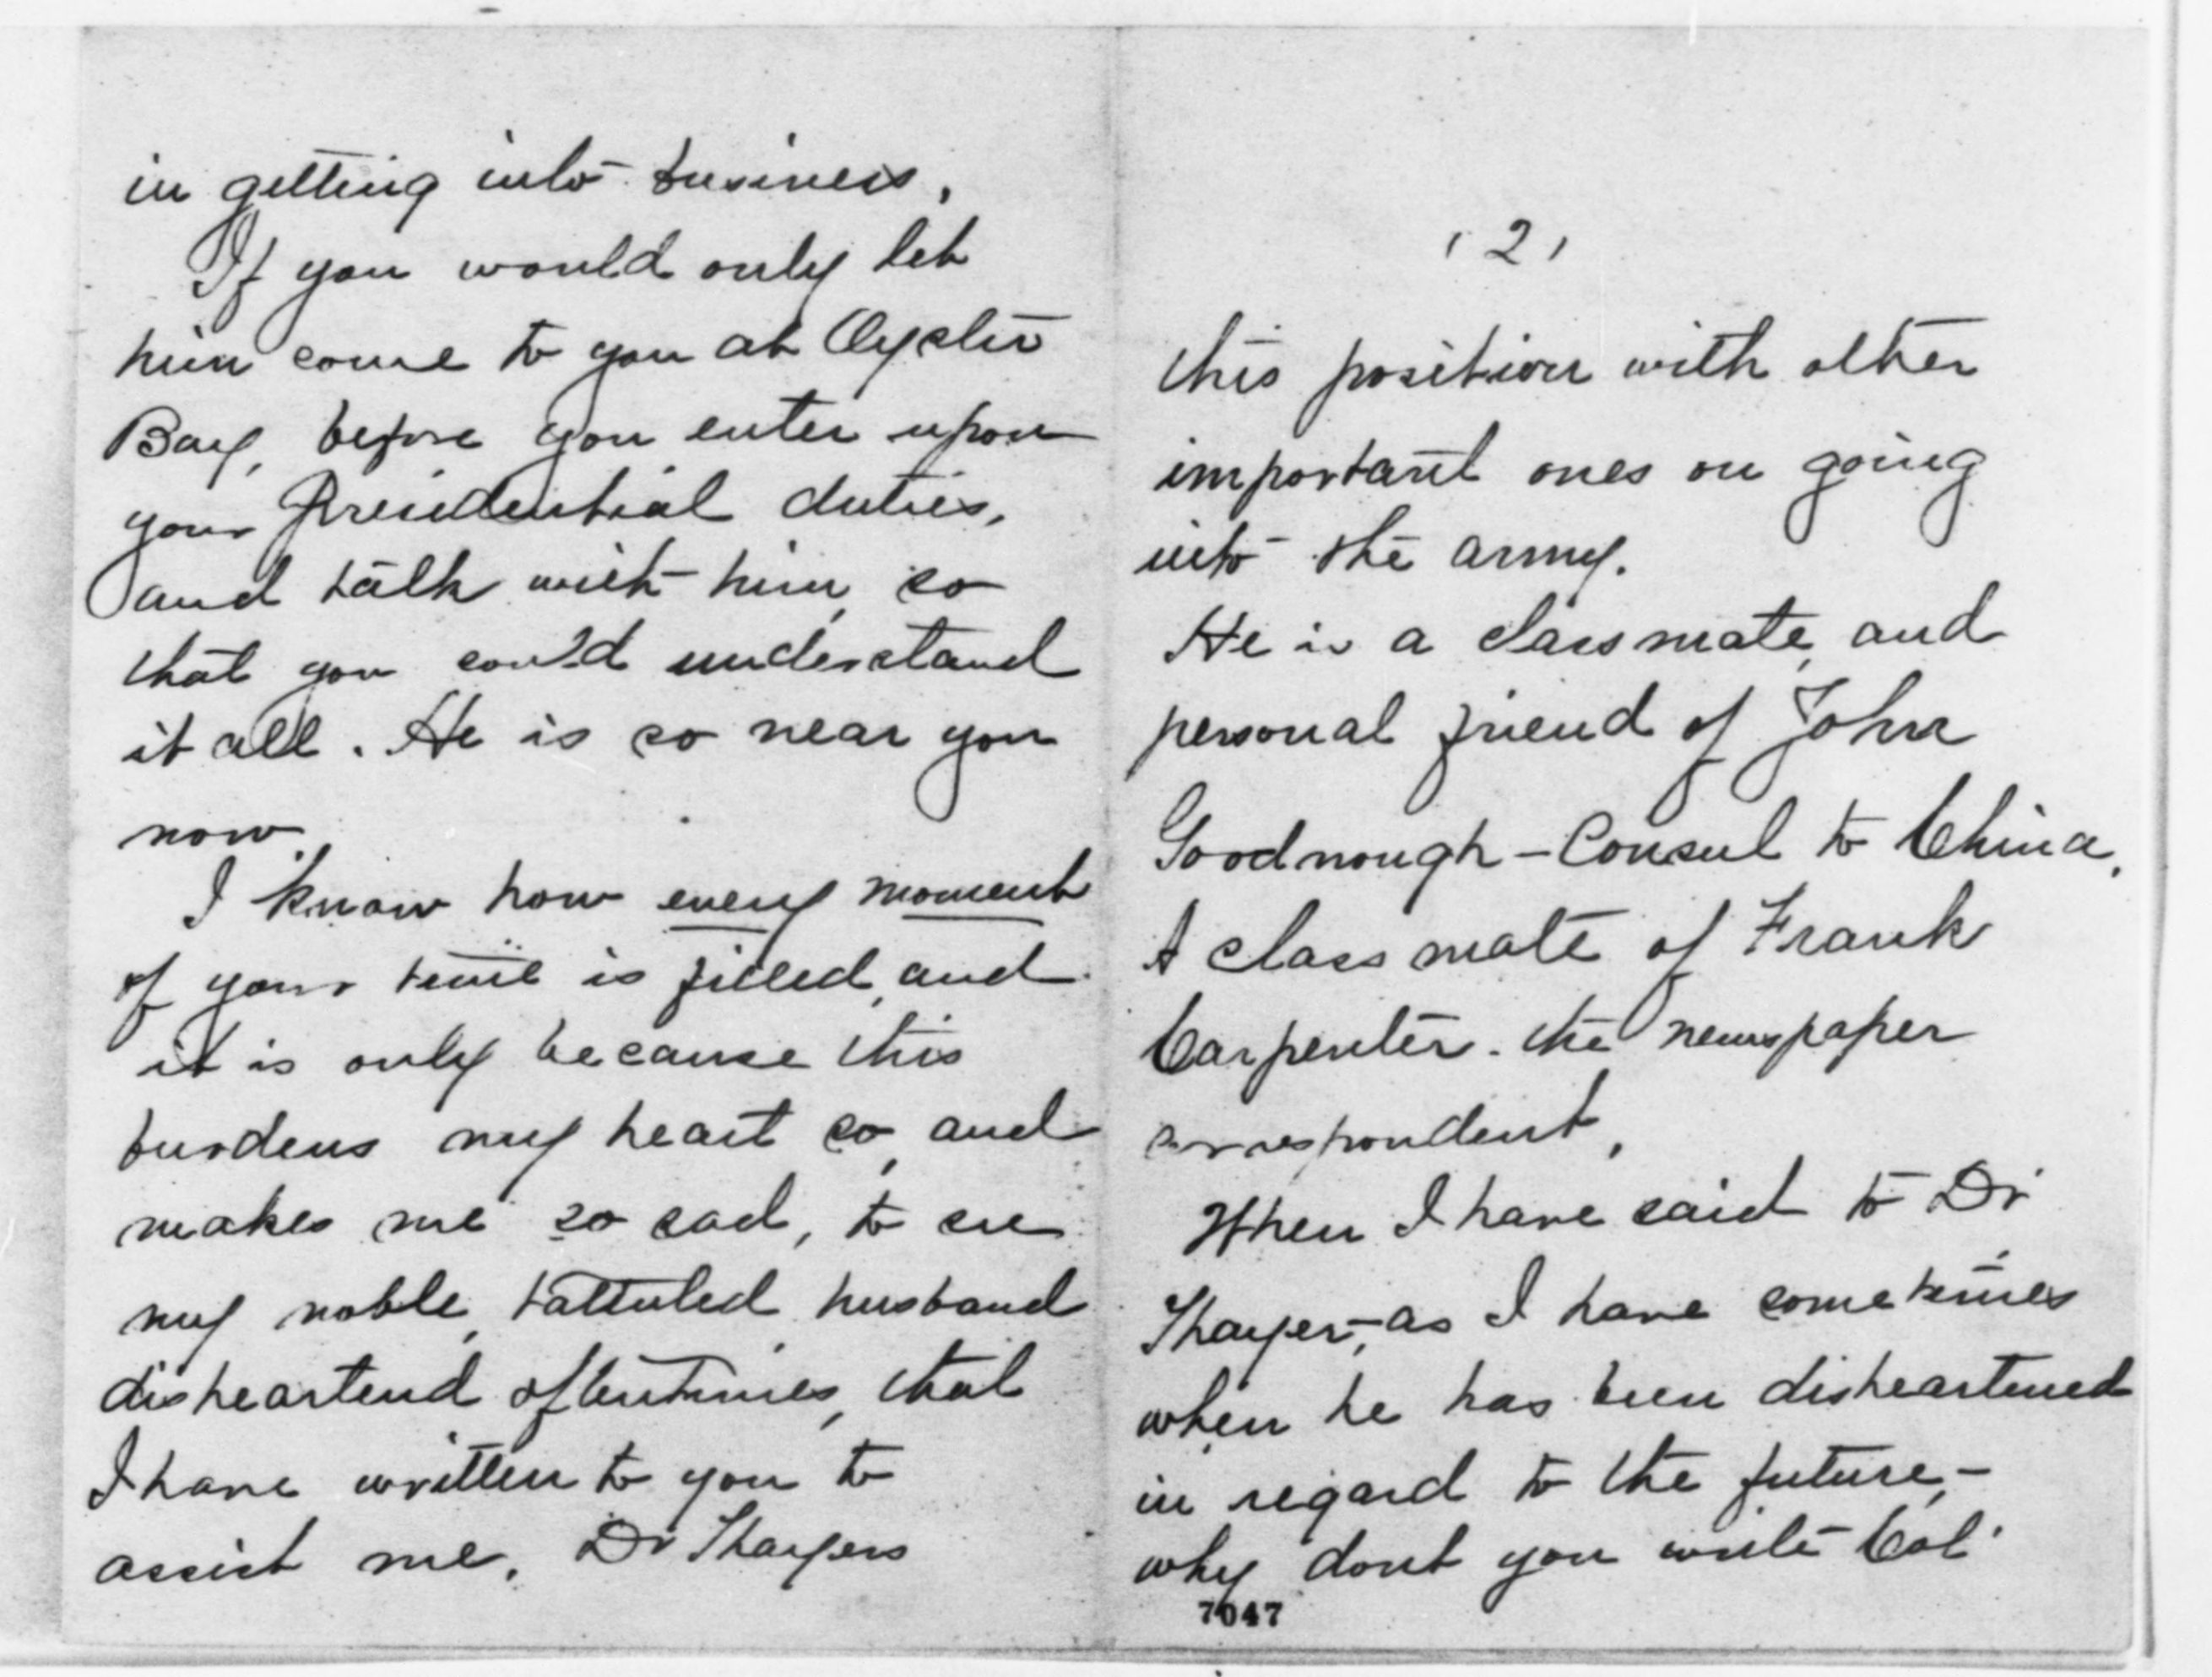 in getting into business,
If you would only let
him come to you at Oyster
Bay, before you enter upon
your Presidential duties,
and talk with him, so
that you could understand
it all. He is so near you
now.
I know how every moment
of your time is filled, and
it is only because this
burdens my heart so, and
makes me so sad, to see
my noble, talented husband
disheartend oftentimes, that
I have written to you to
assist me. Dr Thayers
(2)
this position with other
important ones on going
into the army.
He is a classmate, and
personal friend of John
Goodnough - Consul to China,
A class mate of Frank
Carpenter. the newspaper
correspondent,
When I have said to Dr
Thayer, as I have sometimes
when he has been disheartened
in regard to the future, -
why dont you write Col'
7047